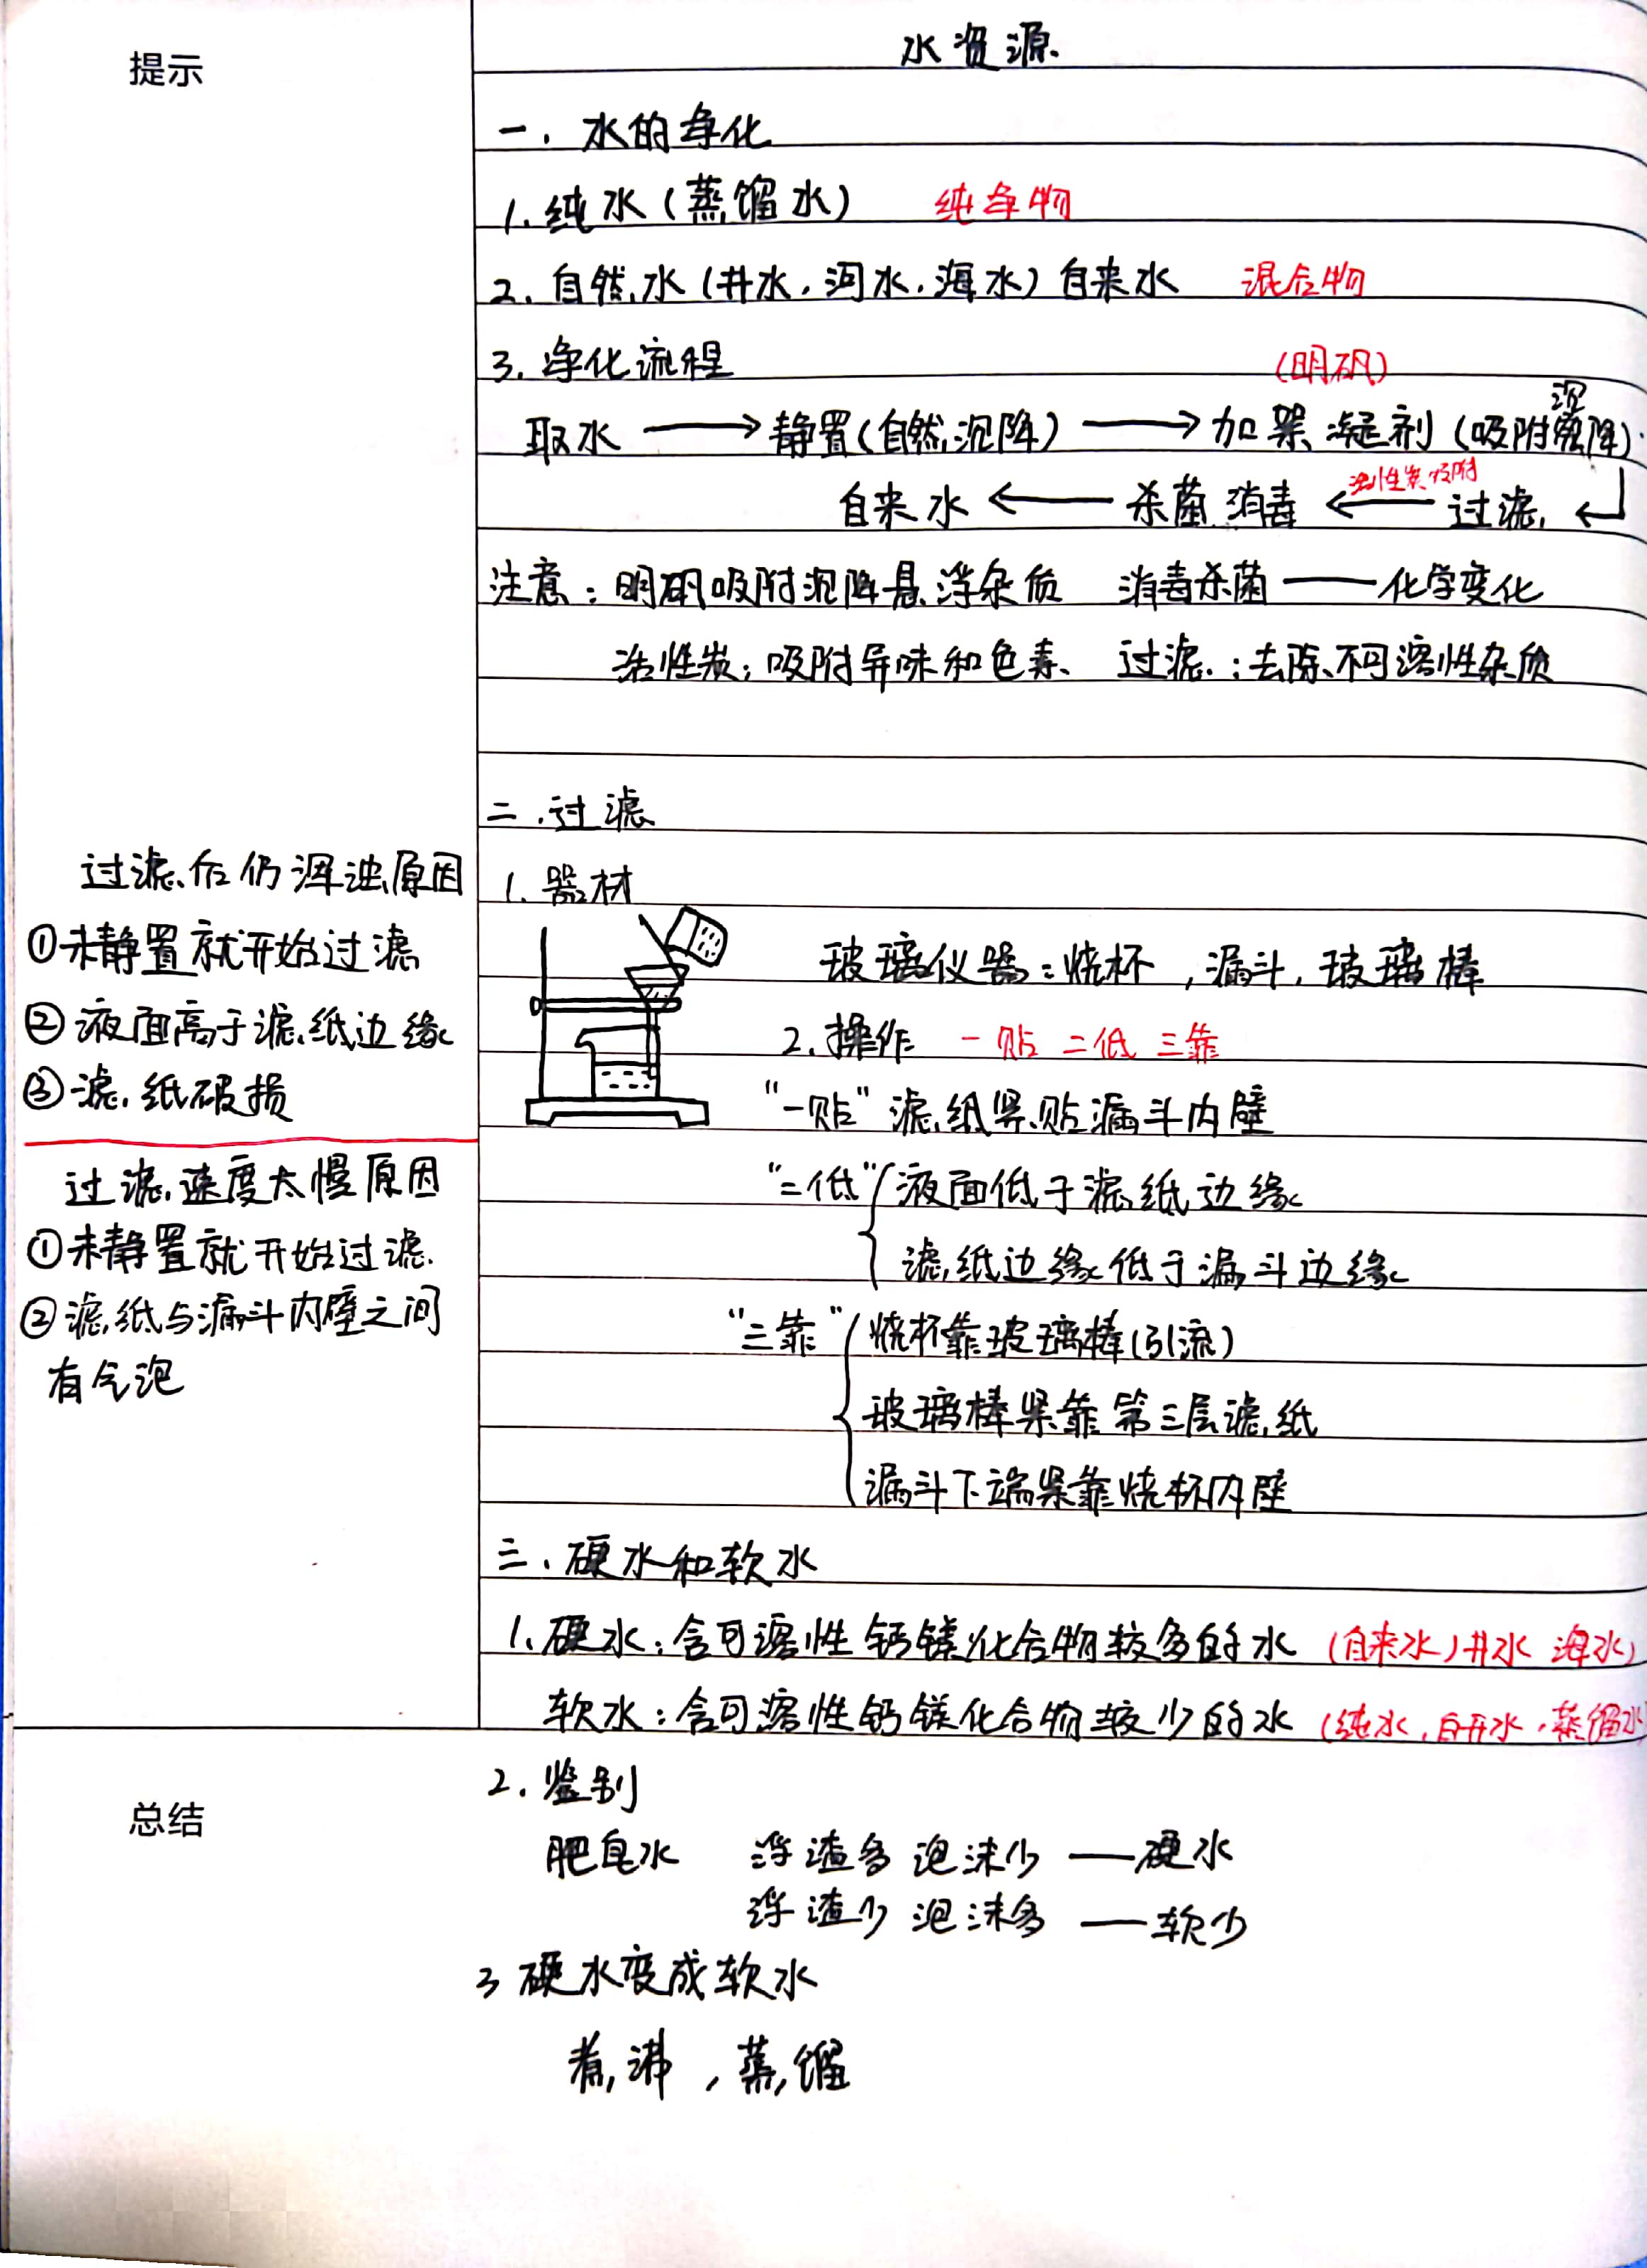 水资源
提示
一. 水的净化
1. 纯水(蒸馏水) 纯净物
2. 自然水(井水,河水,海水)自来水 混合物
3. 净化流程
(明矾)
取水 → 静置(自然沉降) → 加絮凝剂(吸附沉降)
自来水 ← 杀菌消毒 ← 活性炭吸附 过滤 ↵
注意:明矾吸附沉降悬浮杂质 消毒杀菌——化学变化
活性炭:吸附异味和色素、 过滤:去除不可溶性杂质
二. 过滤
1. 器材
玻璃仪器:烧杯,漏斗,玻璃棒
2. 操作 一贴 二低 三靠
“一贴”滤纸紧贴漏斗内壁
“二低”液面低于滤纸边缘
滤纸边缘低于漏斗边缘
“三靠”烧杯靠玻璃棒(引流)
玻璃棒紧靠第三层滤纸
漏斗下端紧靠烧杯内壁
过滤后仍浑浊原因
①未静置就开始过滤
②液面高于滤纸边缘
③滤纸破损
过滤速度太慢原因
①未静置就开始过滤
②滤纸与漏斗内壁之间
有气泡
三. 硬水和软水
1. 硬水:含可溶性钙镁化合物较多的水 (自来水)井水 海水)
软水:含可溶性钙镁化合物较少的水 (纯水,白开水,蒸馏水)
2. 鉴别
肥皂水 浮渣多 泡沫少 ——硬水
浮渣少 泡沫多 ——软少
3 硬水变成软水
煮沸,蒸馏
总结